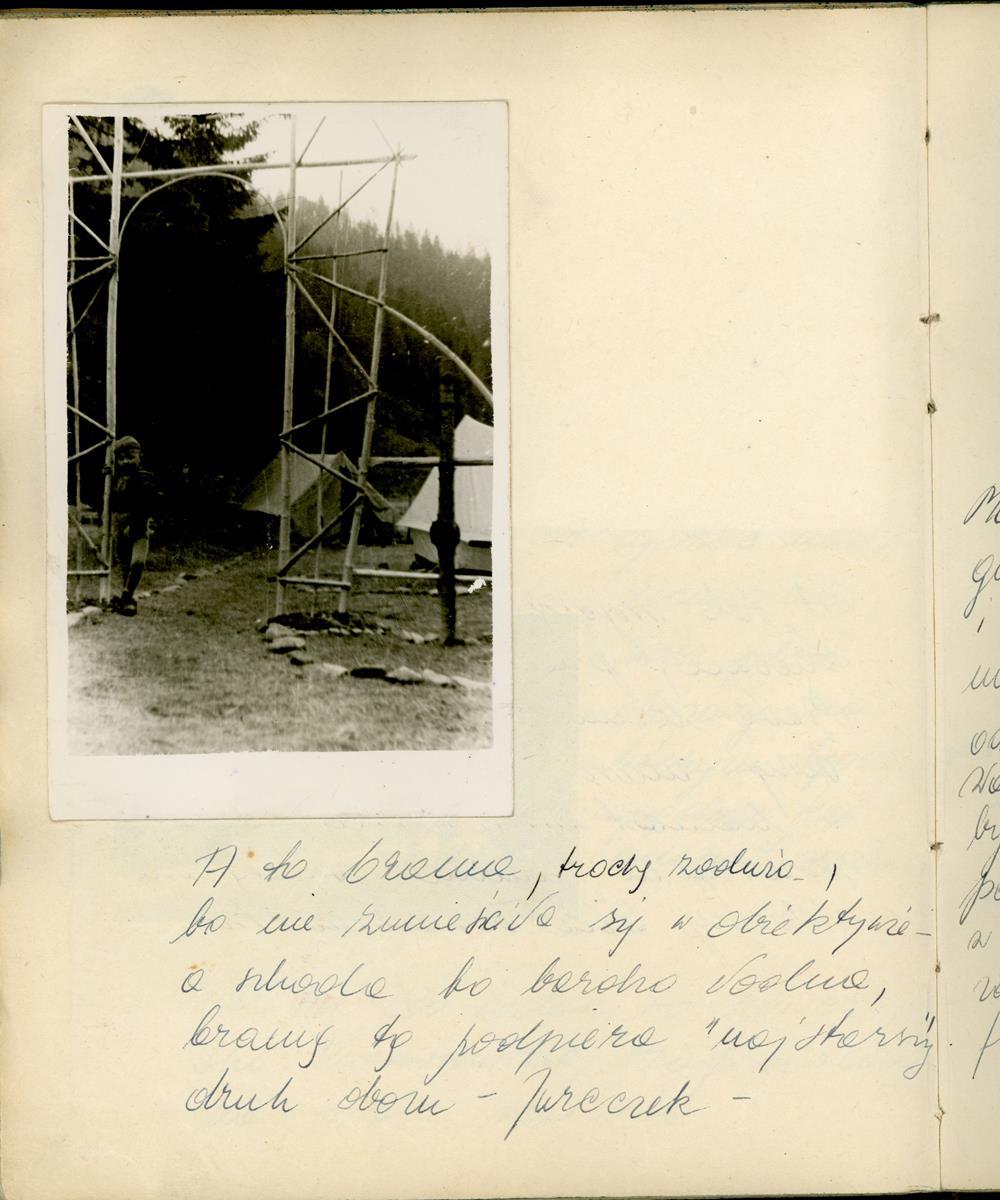 A to brama, trochę
bo nie zmieściła się w obiektywie -
a szkoda bo bardzo ładna,
bramę tę podpiera "najstarszy"
druh obozu - Jureczek -